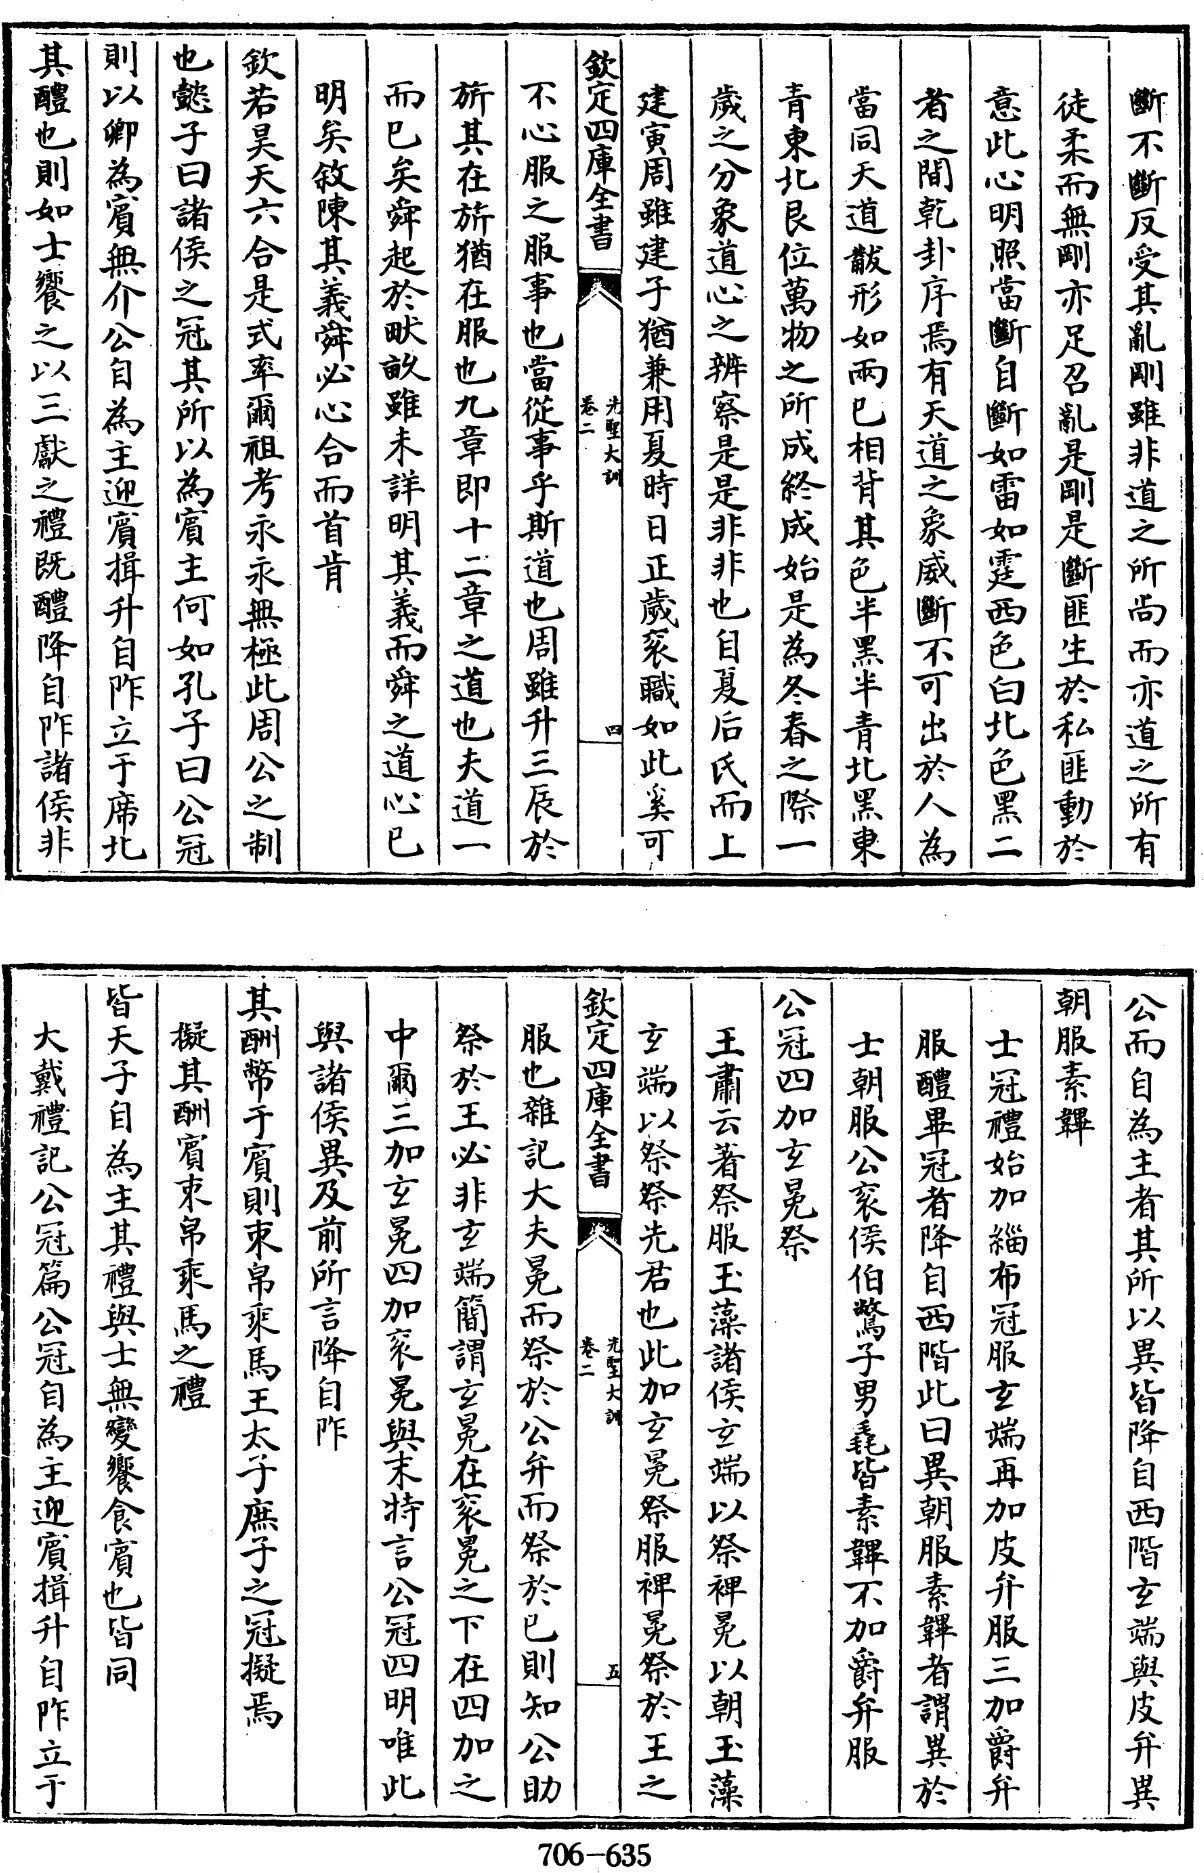 斷不斷反受其亂剛雖非道之所尚而亦道之所有
徒柔而無剛亦足召亂是剛是斷匪生於私匪動於
意此心明照當斷自斷如雷如霆西色白北色黑二
者之間乾卦序焉有天道之象威斷不可出於人為
當同天道黻形如兩已相背其色半黑半青北黑東
青東北艮位萬物之所成終成始是為冬春之際一
歲之分象道心之辨察是是非非也自夏后氏而上
建寅周雖建子猶兼用夏時日正歲袞職如此奚可
欽定四庫全書
先聖大訓
卷二
四
不心服之服事也當從事乎斯道也周雖升三辰於
旂其在旂猶在服也九章即十二章之道也夫道一
而已矣舜起於畎畝雖未詳明其義而舜之道心已
明矣敘陳其義舜必心合而首肯
欽若昊天六合是式率爾祖考永永無極此周公之制
也懿子曰諸侯之冠其所以為賓主何如孔子曰公冠
則以卿為賓無介公自為主迎賓揖升自阼立于席北
其醴也則如士饗之以三獻之禮既醴降自阼諸侯非
公而自為主者其所以異皆降自西階玄端與皮弁異
朝服素韠
士冠禮始加緇布冠服玄端再加皮弁服三加爵弁
服醴畢冠者降自西階此曰異朝服素韠者謂異於
士朝服公袞侯伯鷩子男毳皆素韠不加爵弁服
公冠四加玄冕祭
王肅云著祭服玉藻諸侯玄端以祭裨冕以朝玉藻
玄端以祭祭先君也此加玄冕祭服裨冕祭於王之
欽定四庫全書
先聖大訓
卷二
五
服也雜記大夫冕而祭於公弁而祭於已則知公助
祭於王必非玄端簡謂玄冕在袞冕之下在四加之
中爾三加玄冕四加袞冕與末特言公冠四明唯此
與諸侯異及前所言降自阼
其酬幣于賓則束帛乘馬王太子庶子之冠擬焉
擬其酬賓束帛乘馬之禮
皆天子自為主其禮與士無變饗食賓也皆同
大戴禮記公冠篇公冠自為主迎賓揖升自阼立于
706-635